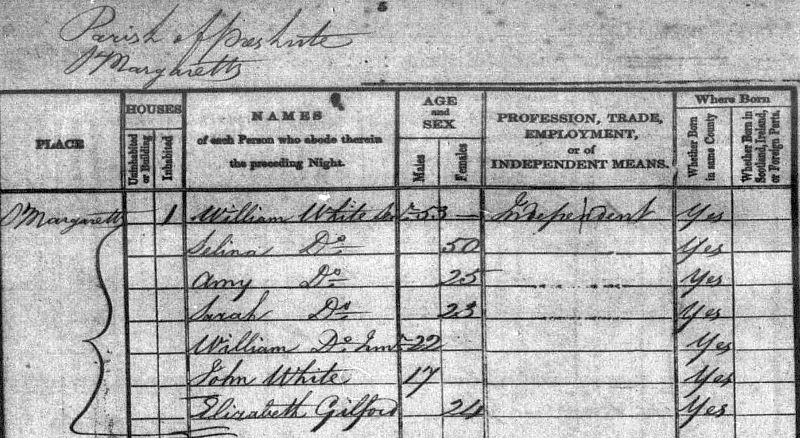 5
Parish of Preshute
St Margaretts
PLACE
HOUSES
Uninhabited or Building
Inhabited
NAMES
of each Person who abode therein
the preceding Night.
AGE
and
SEX
Males
Females
PROFESSION, TRADE,
EMPLOYMENT,
or of
INDEPENDENT MEANS.
Where Born
Whether Born in same County
Whether Born in Scotland, Ireland, or Foreign Parts.
St Margaretts 1 William White Senr 53 — Independent Yes
Selina Do 50 Yes
Amy Do 25 Yes
Sarah Do 23 Yes
William Do Junr 22 Yes
John White 17 Yes
Elizabeth Gilford 24 Yes